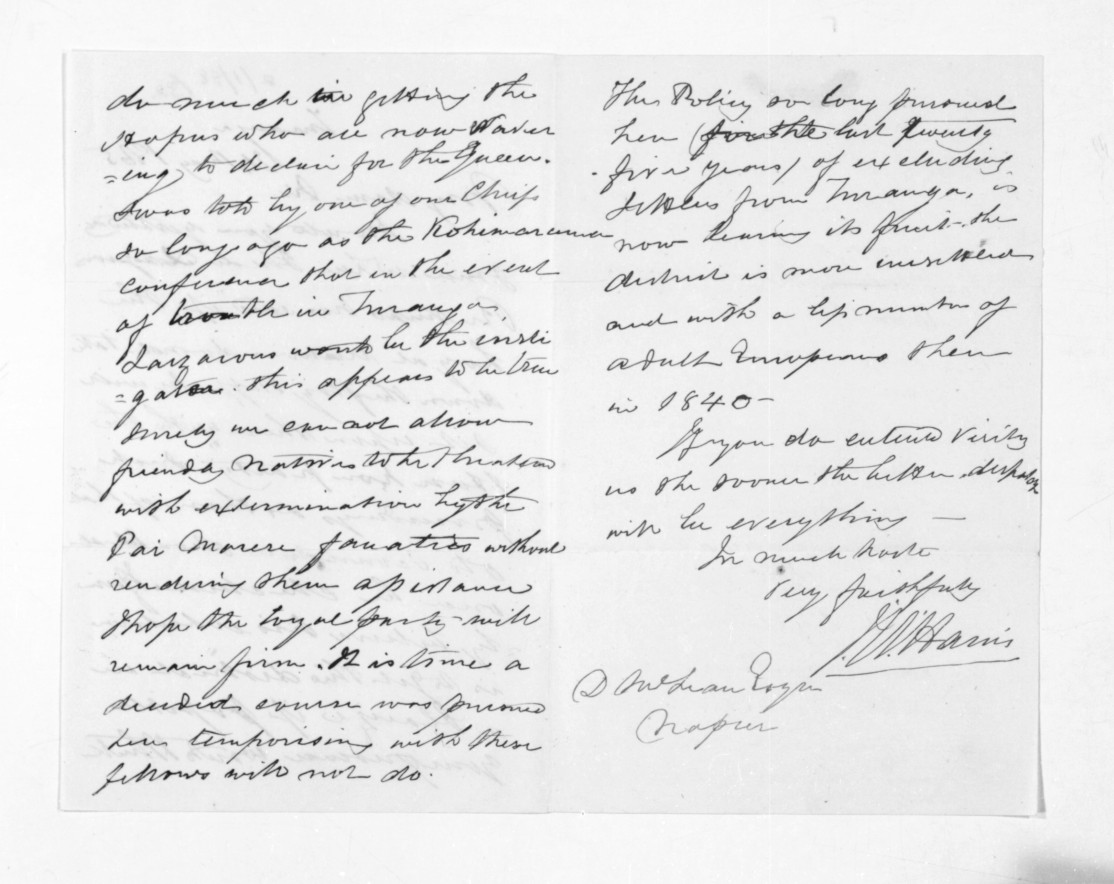 do much in getting the
Hapus who are now waver
=ing, to declare for the Queen.
I was told by one of our Chiefs
so long ago as the Kohimarama
conference that in the event
of trouble in Turanga.
Lazarous would be the insti
=gator. this appears to be true
surely we can not allow
friendly natives to be threatened
with extermination by the
Pai Marere fanatics without
rendering them assistance
I hope the loyal party will
remain firm. It is time a
decided course was pursued
here temporising with these
fellows will not do.
This Policy so long pursued
here (for the last twenty
five years) of excluding
settlers from Turanga, is
now bearing its fruit - the
district is more unsettled
and with a less number of
adult Europeans than
in 1840 -
If you do intend visiting
us the sooner the better. dispatch
will be everything -
In much haste
Very faithfully
J.W. Harris
D McLean Esqre
Napier